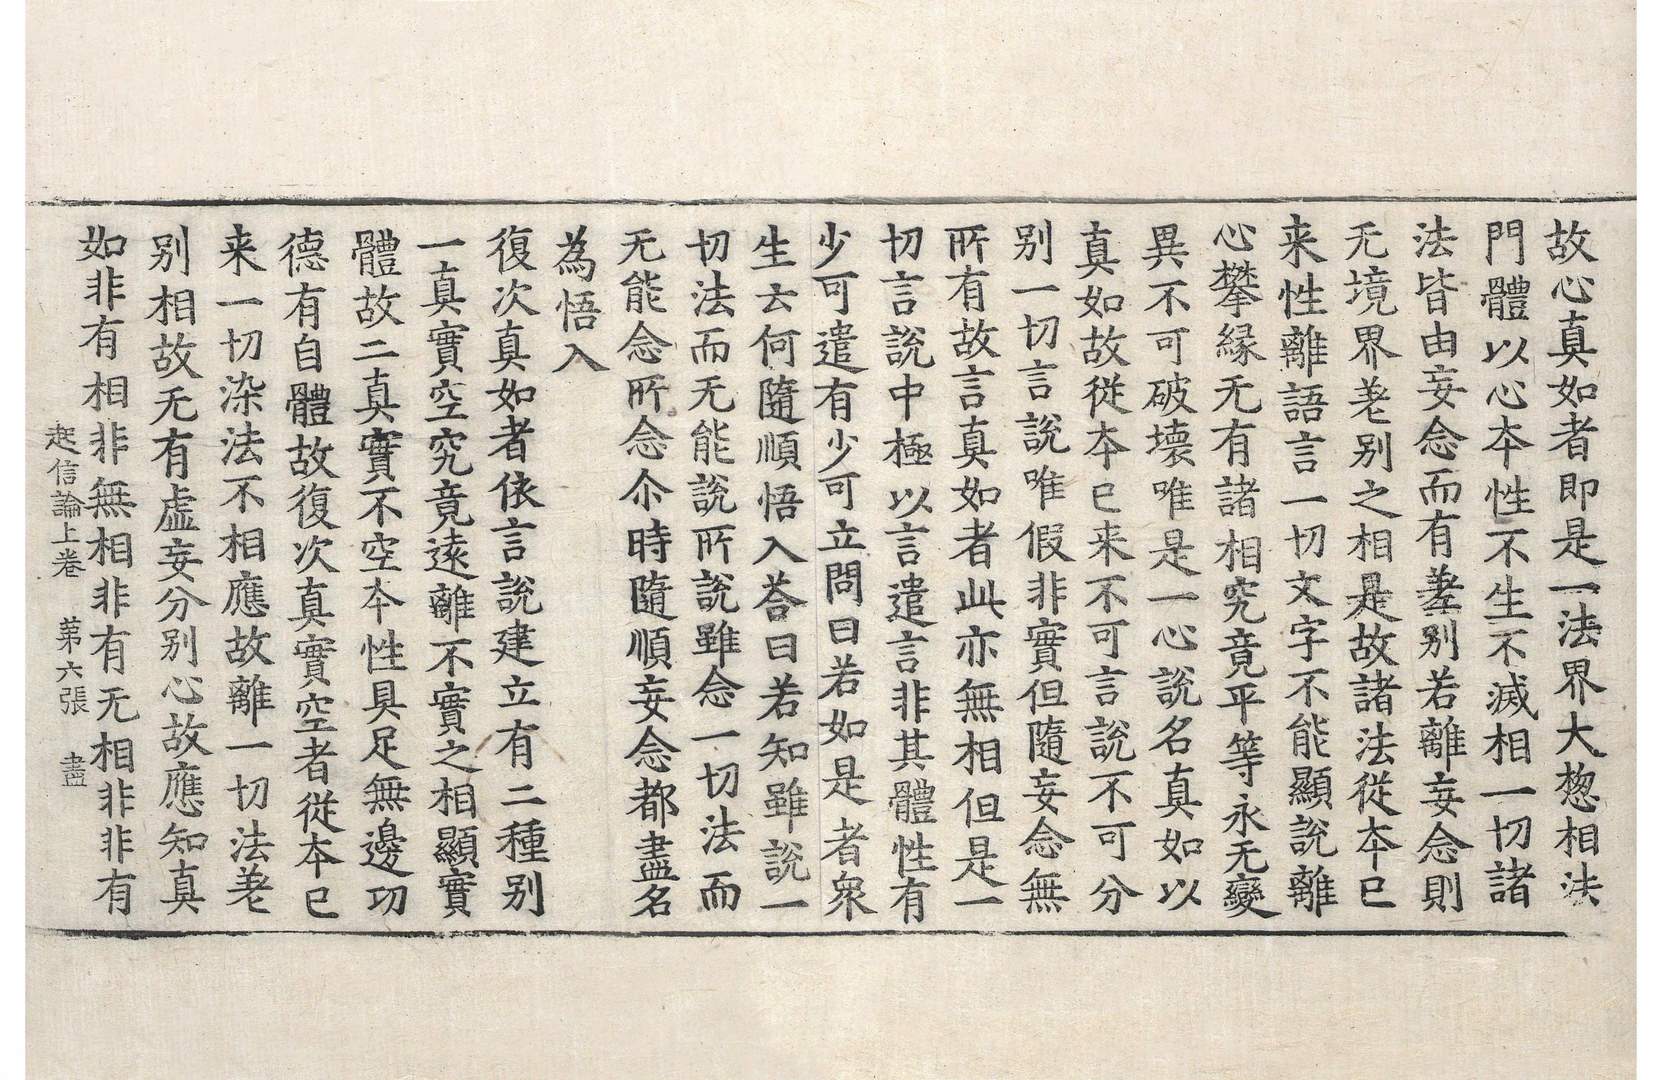 故心真如者即是一法界大惣相法
門體以心本性不生不滅相一切諸
法皆由妄念而有差别若離妄念則
无境界差别之相是故諸法從本已
来性離語言一切文字不能顯說離
心攀緣无有諸相究竟平等永无變
異不可破壞唯是一心說名真如以
真如故從本已来不可言說不可分
别一切言說唯假非實但隨妄念無
所有故言真如者此亦無相但是一
切言說中極以言遣言非其體性有
少可遣有少可立問曰若如是者衆
生云何隨順悟入荅曰若知雖說一
切法而无能說所說雖念一切法而
无能念所念尒時隨順妄念都盡名
為悟入
復次真如者依言說建立有二種别
一真實空究竟遠離不實之相顯實
體故二真實不空本性具足無邊功
德有自體故復次真實空者從本已
来一切染法不相應故離一切法差
别相故无有虛妄分别心故應知真
如非有相非無相非有无相非非有
起信論上卷 第六張 盡